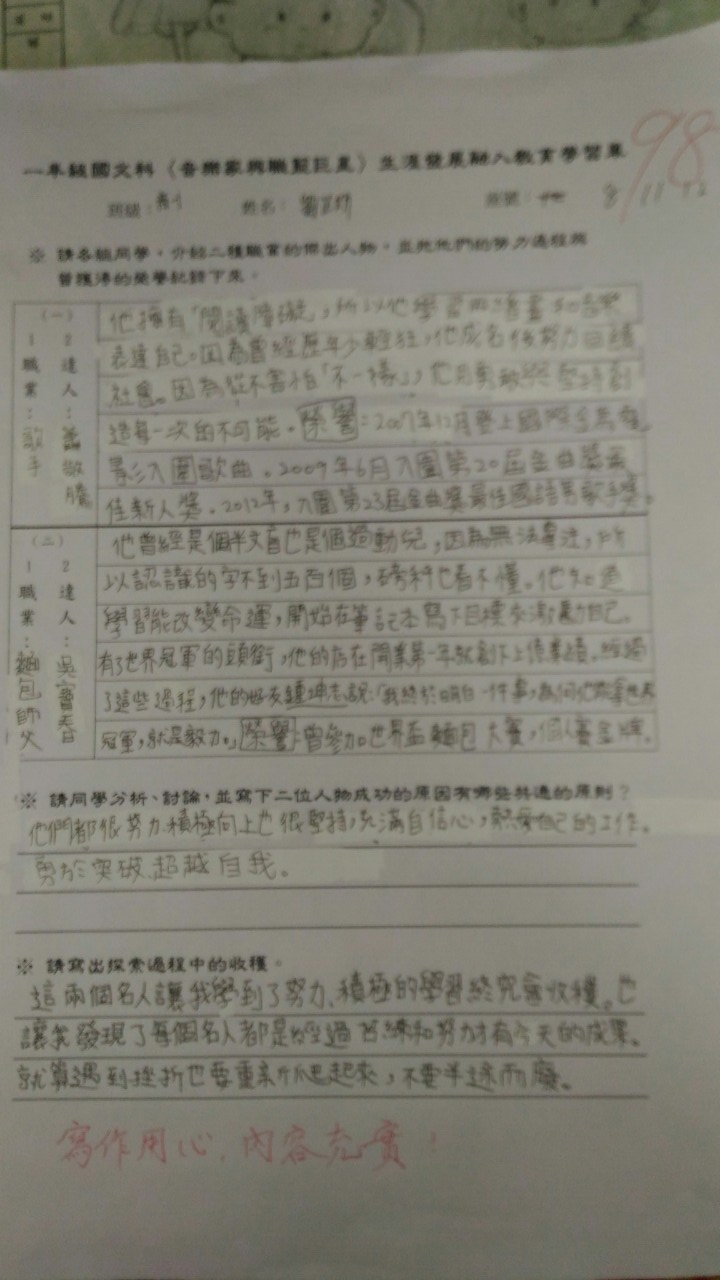 98
一年級國文科〈音樂家與職籃巨星〉生涯發展融入教育學習單
班級： 姓名： 座號： 8/11
※ 請各組同學，分組介紹二種職業的傑出人物，並把他們的努力過程與
曾獲得的榮譽記錄下來。
(一)
1 職業：歌手
2 達人：蕭敬騰
他擁有「閱讀障礙」，所以他學習用漫畫和音樂
表達自己。因為曾經歷年少輕狂，他成名後努力回饋
社會。因為從不害怕「不一樣」，他用勇敢與堅持創
造每一次的不可能。榮譽：2007年12月登上國際金馬
影入圍歌曲。2009年6月入圍第20屆金曲獎最
佳新人獎。2012年，入圍第23屆金曲獎最佳國語男歌手獎。
(二)
1 職業：麵包師父
2 達人：吳寶春
他曾經是個半文盲也是個過動兒，因為無法專注，所
以認識的字不到五百個，磅秤也看不懂。他知道
學習能改變命運，開始在筆記本寫下目標來激勵自己。
有了世界冠軍的頭銜，他的店在開業第一年就創下上億業績。經過
了這些過程，他的好友鍾坤志說：「我終於明白一件事，為何他能拿世界
冠軍，就是毅力。」榮譽：曾參加世界盃麵包大賽，個人賽金牌。
※ 請同學分析、討論，並寫下二位人物成功的原因有哪些共通的原則？
他們都很努力、積極向上也很堅持，充滿自信心，熱愛自己的工作。
勇於突破、超越自我。
※ 請寫出探索過程中的收穫。
這兩個名人讓我學到了努力、積極的學習終究會收穫。也
讓我發現了每個名人都是經過苦練和努力才有今天的成果。
就算遇到挫折也要重新爬起來，不要半途而廢。
寫作用心、內容充實！